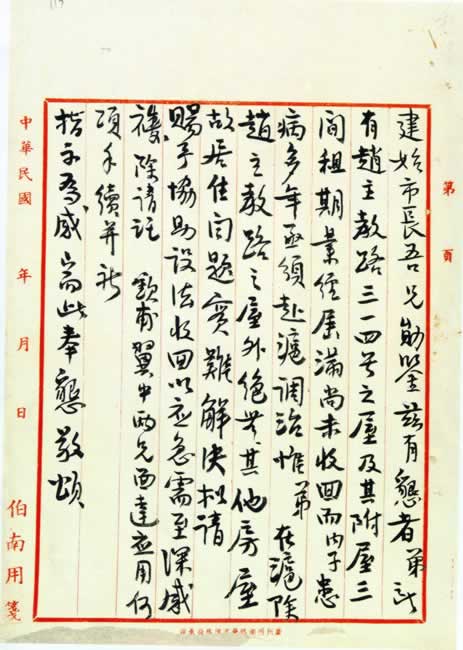 第 頁
建始市長吾兄勛鑒茲有懇者弟所
有趙主教路三一四号之屋及其附屋三
間租期業經屆滿尚未收回而內子患
病多年亟須赴滬調治惟弟在滬除
趙主教路之屋外絕無其他房屋
故居住问題實難解決拟請
賜予協助設法收回以应急需至深感
禱除請託 甫翼中兩兄面達应用何
項手續并祈
指示為感耑此奉懇敬頌
中華民國 年 月 日
伯南用箋